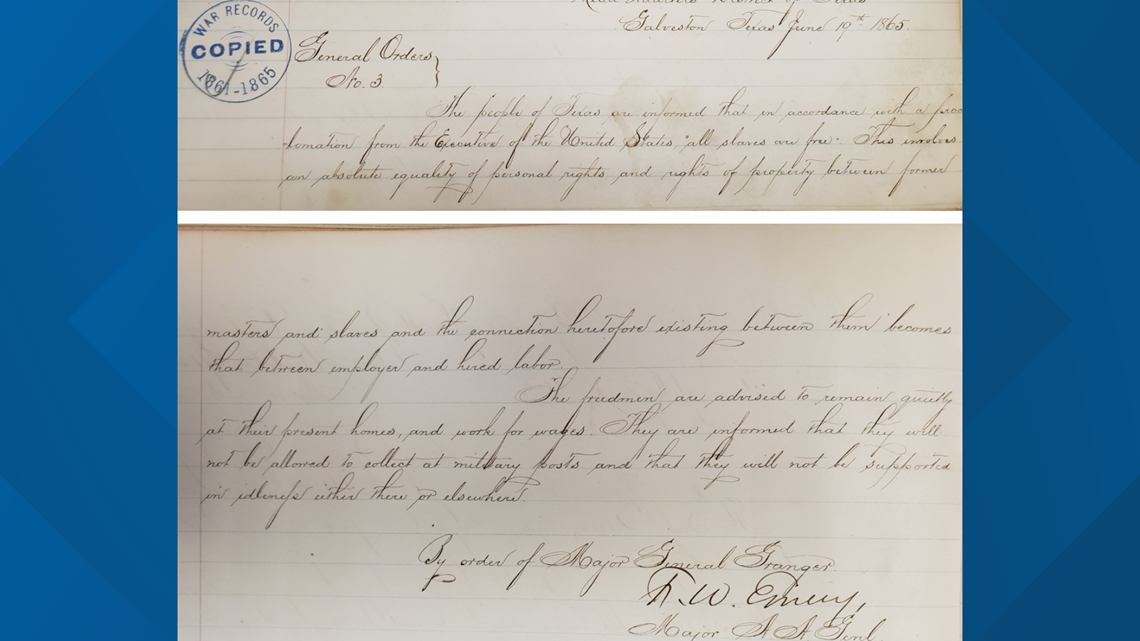 WAR RECORDS
COPIED
1861-1865
Head Quarters District of Texas
Galveston Texas June 19th 1865.
General Orders
No. 3.
The people of Texas are informed that in accordance with a proc
lamation from the Executive of the United States "all slaves are free." This involves
an absolute equality of personal rights and rights of property between former
masters and slaves and the connection heretofore existing between them becomes
that between employer and hired labor.
The freedmen are advised to remain quietly
at their present homes, and work for wages. They are informed that they will
not be allowed to collect at military posts and that they will not be supported
in idleness either there or elsewhere.
By order of Major General Granger
F. W. Emery,
Major A A Genl.